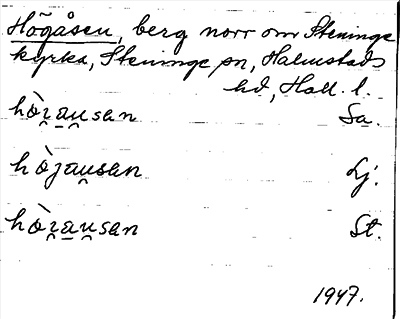 Högåsen, berg norr om Steninge
kyrka, Steninge sn, Halmstads
hd, Hall. l.
hò̱ɪ̯a̱u̯san Sa.
hòjau̯san Lj.
hòɪ̯a̱u̯san St.
1947.